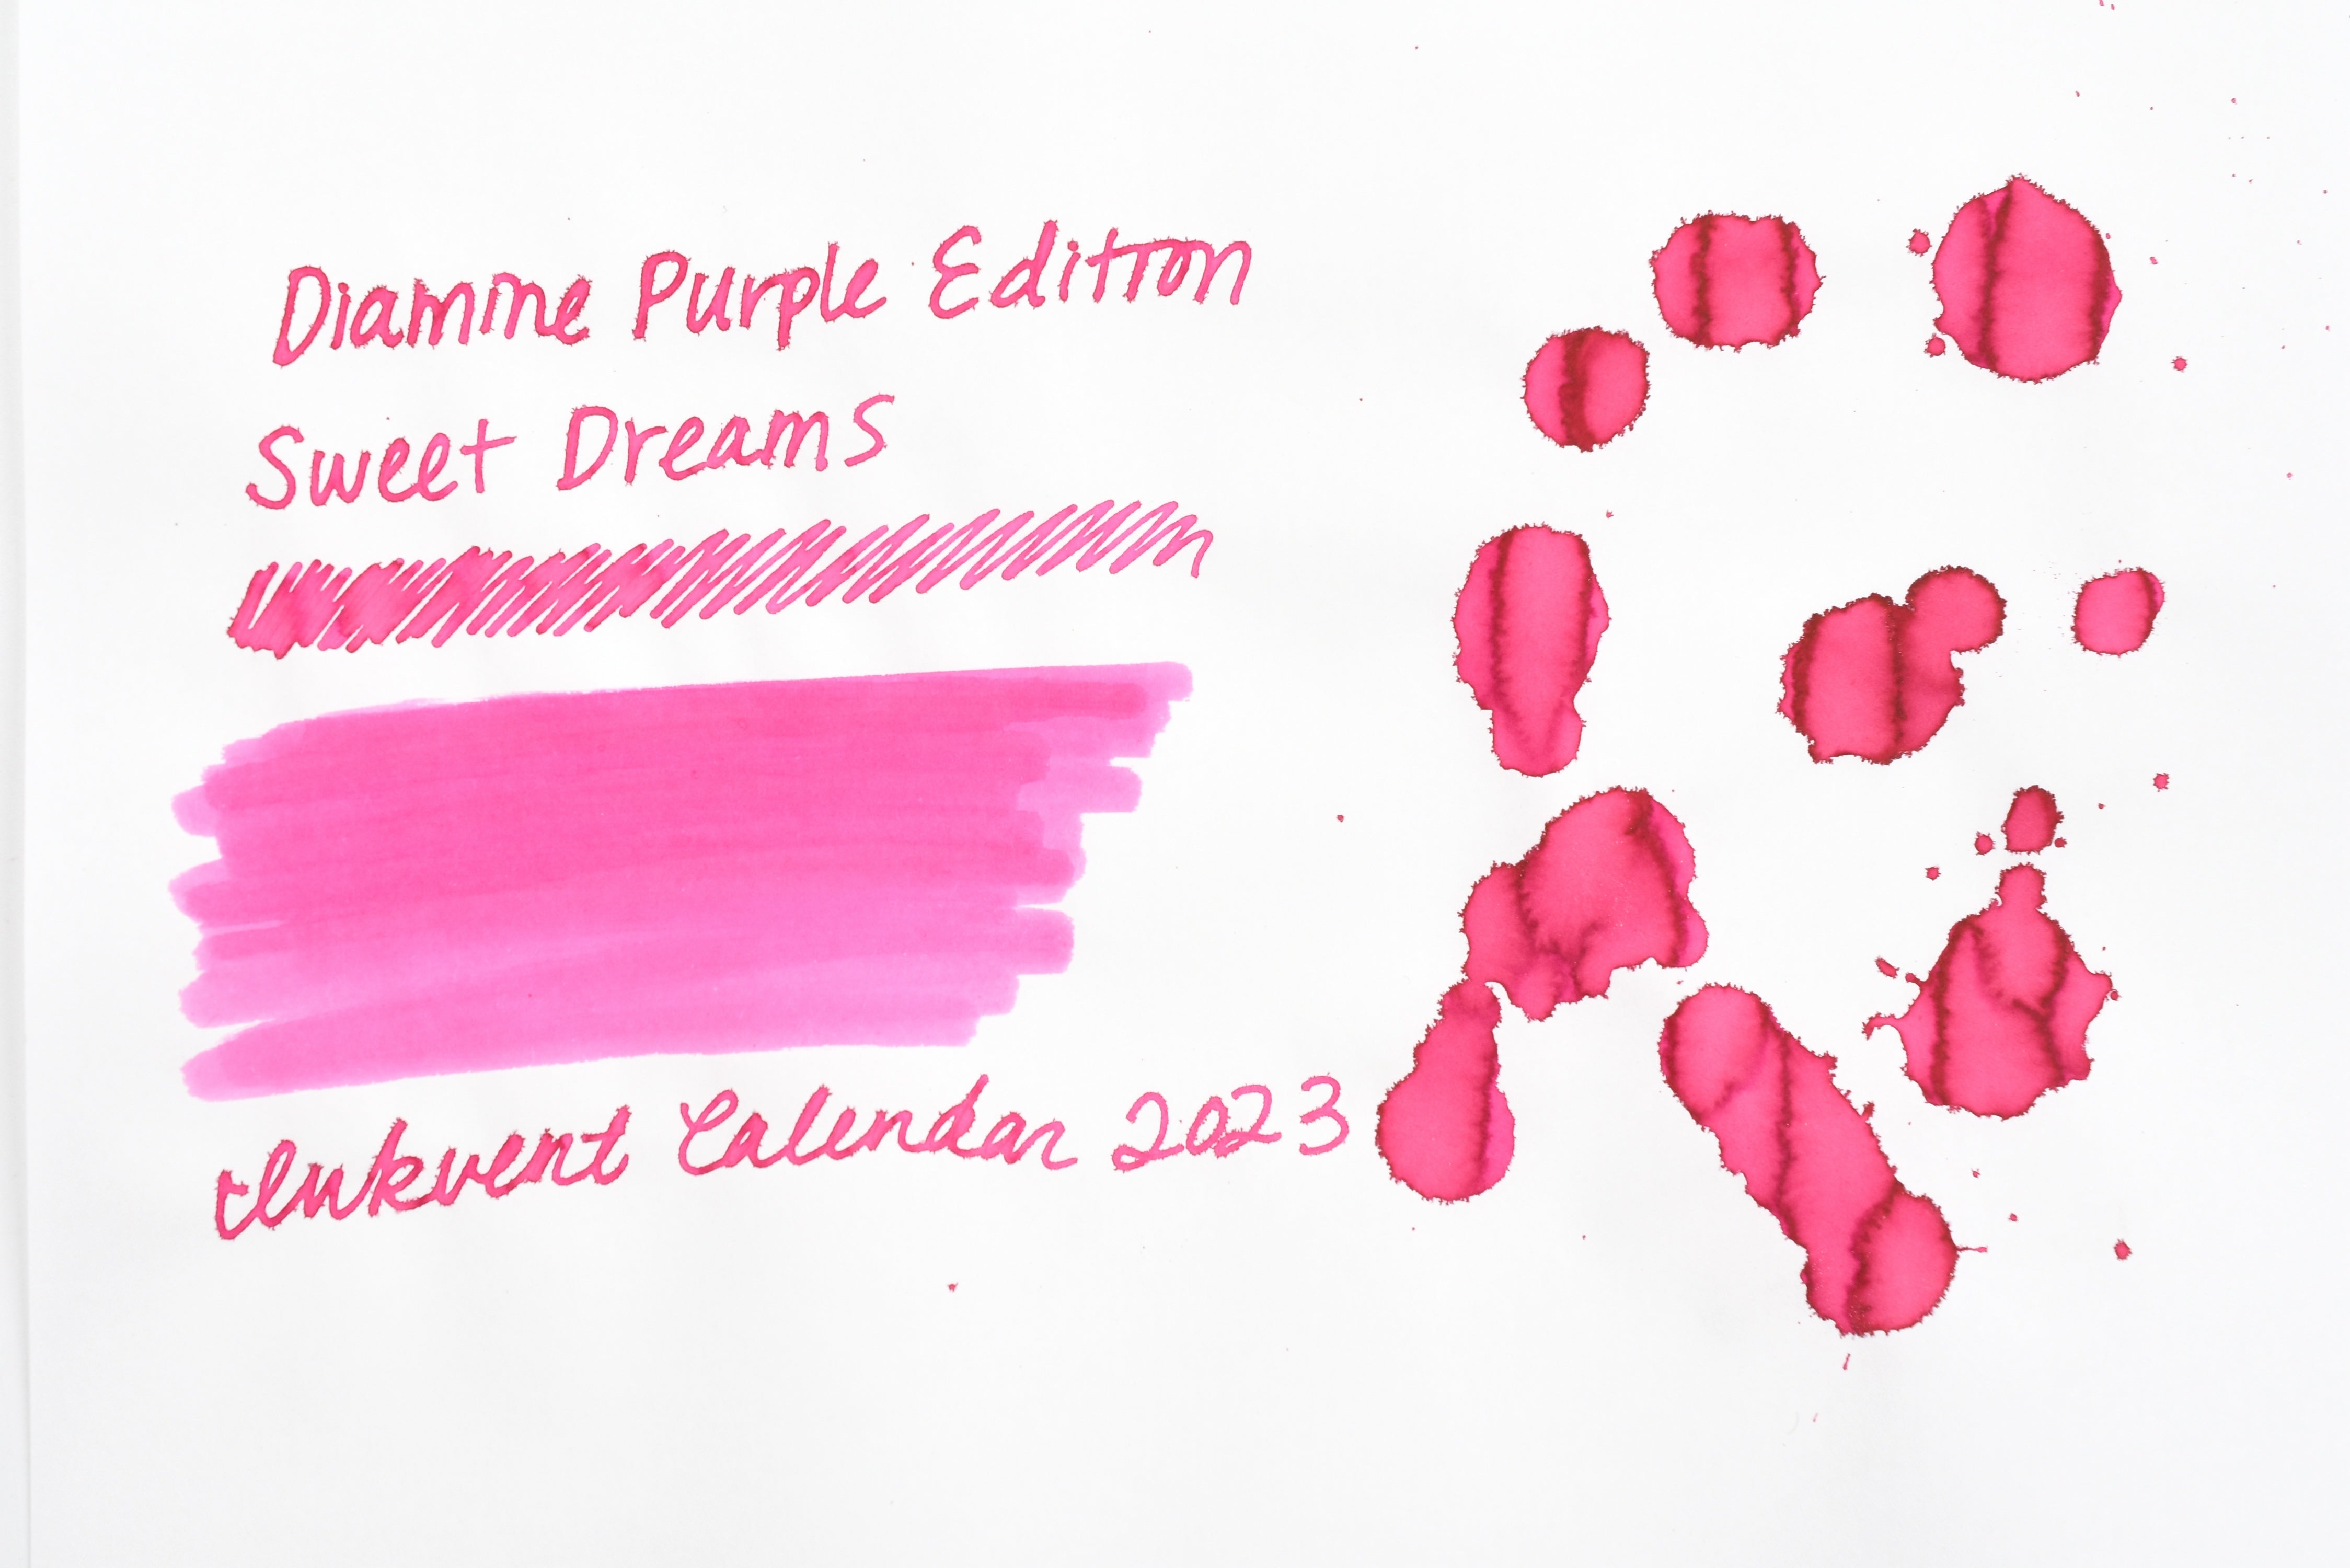 Diamine Purple Edition
Sweet Dreams
Inkvent Calendar 2023